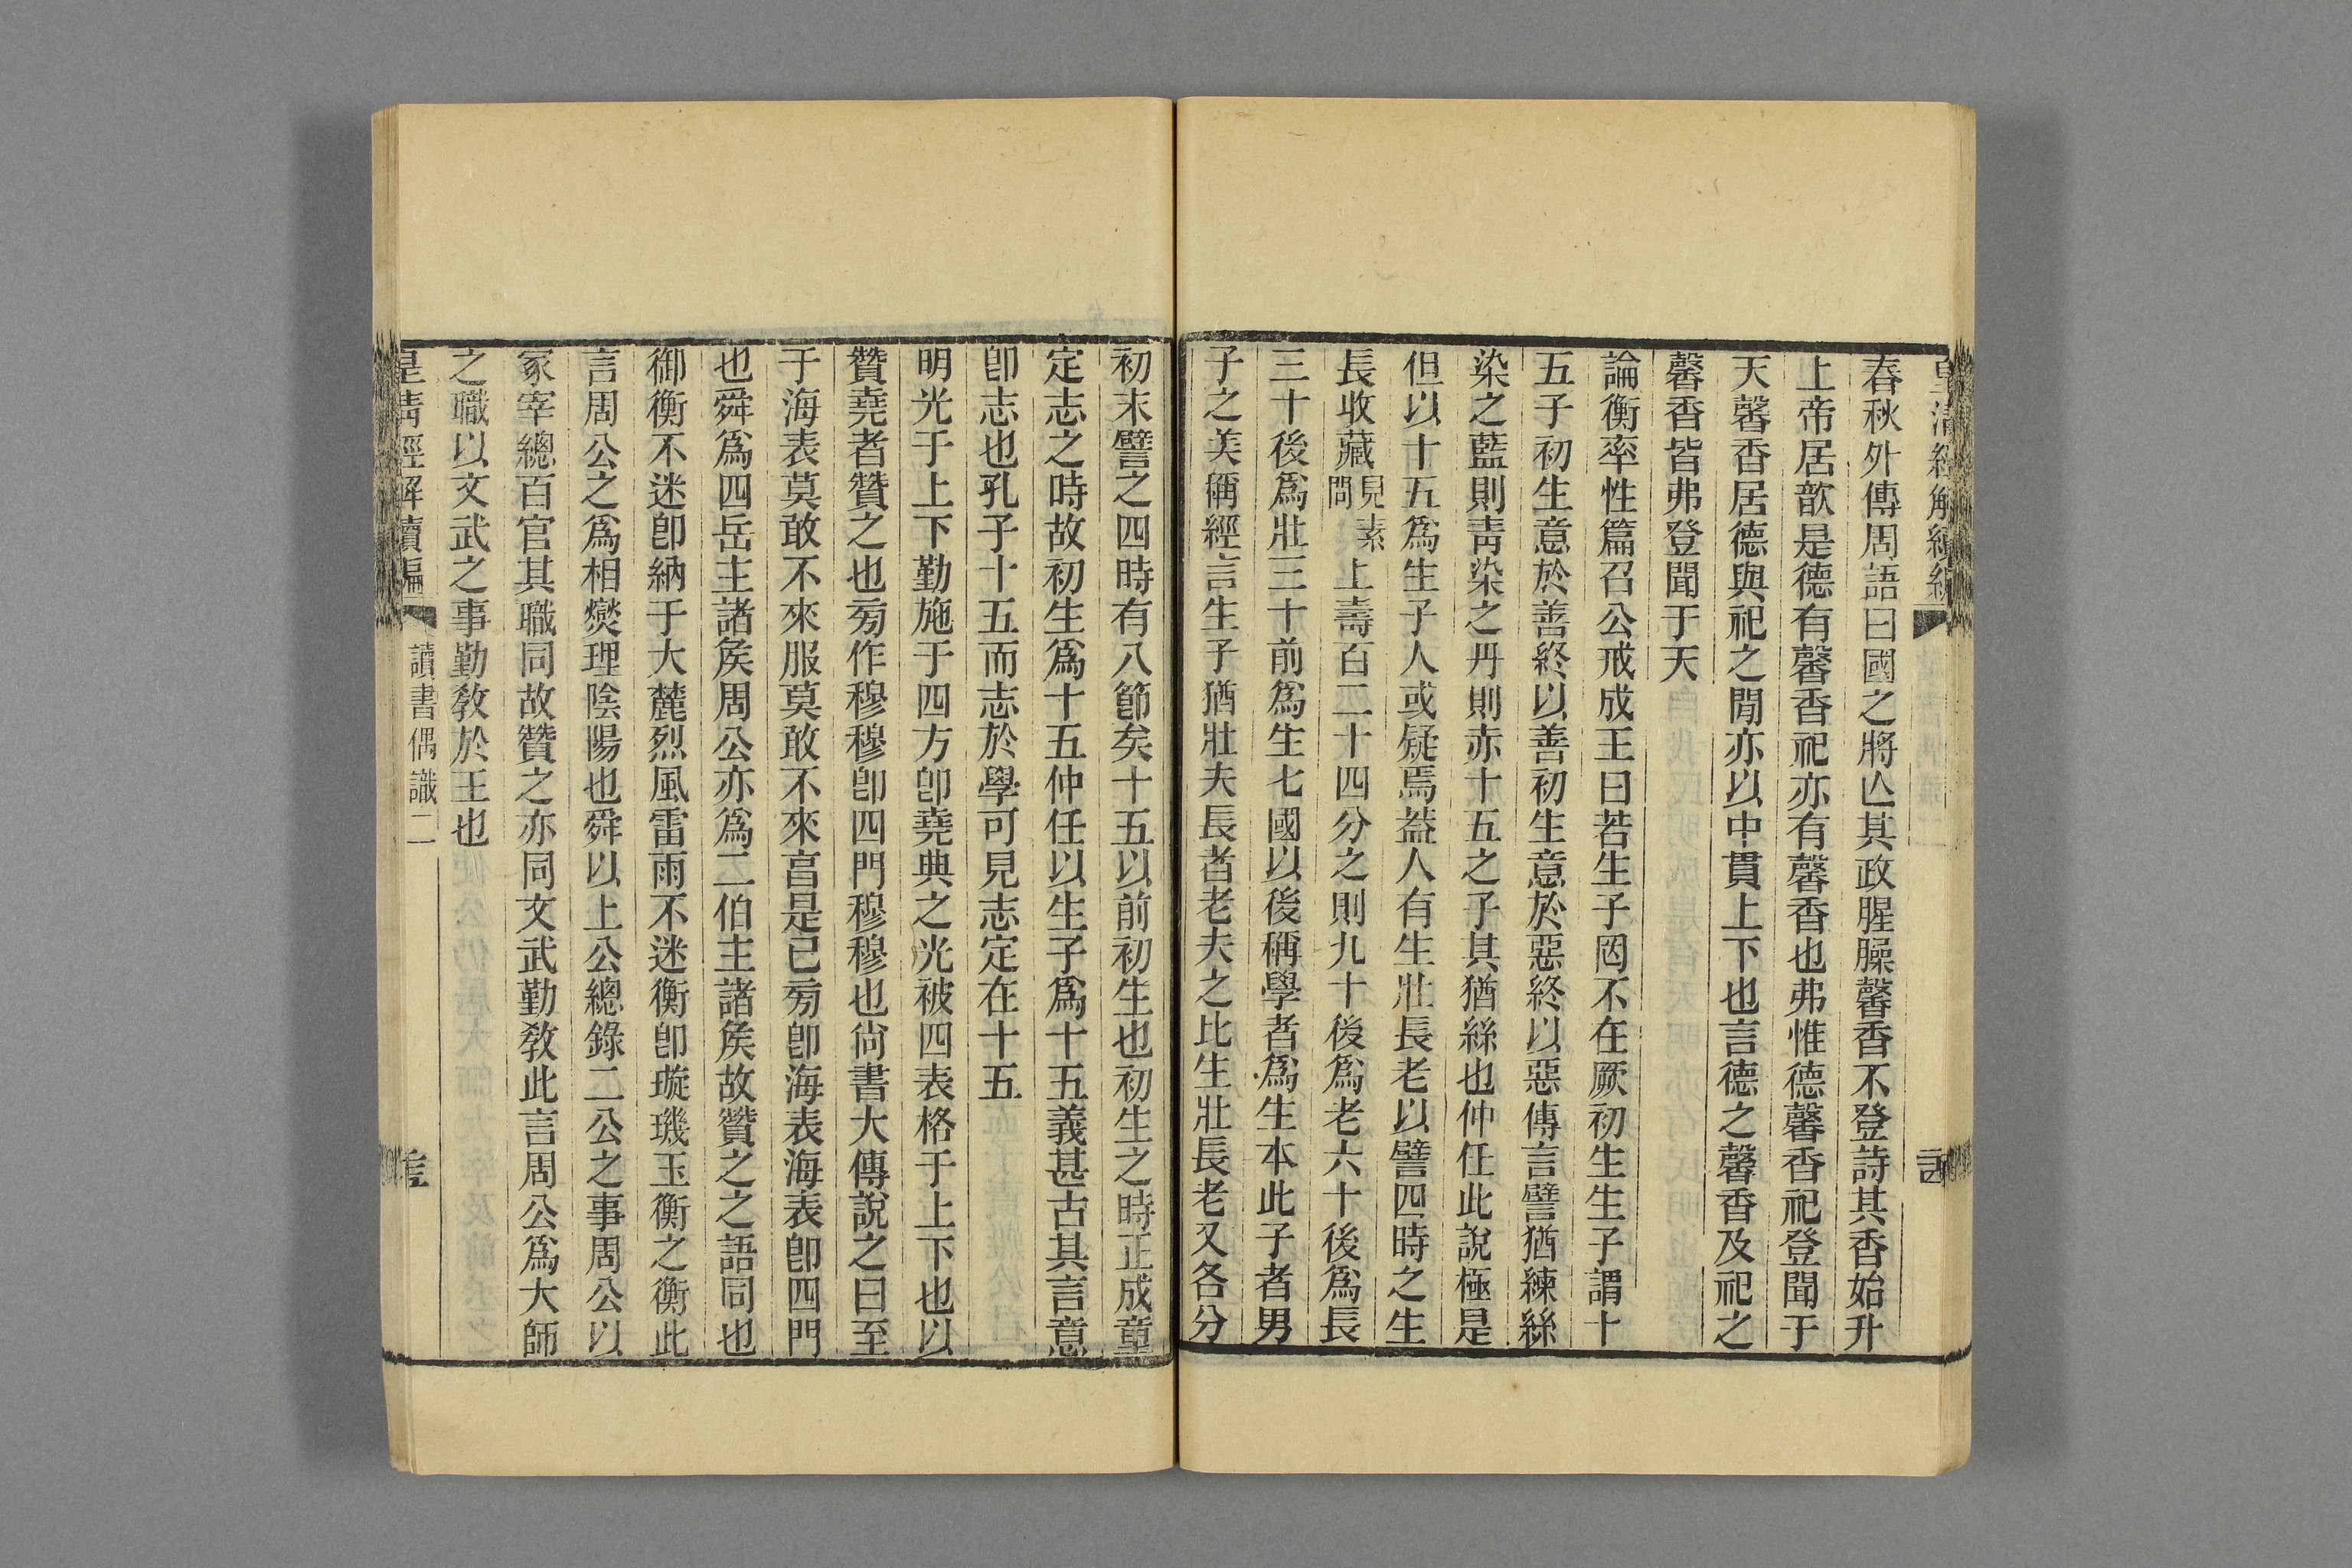 春秋外傳周語曰國之將亾其政腥臊馨香不登詩其香始升
上帝居歆是德有馨香祀亦有馨香也弗惟德馨香祀登聞于
天馨香居德與祀之閒亦以中貫上下也言德之馨香及祀之
馨香皆弗登聞于天
論衡率性篇召公戒成王曰若生子罔不在厥初生生子謂十
五子初生意於善終以善初生意於惡終以惡傳言譬猶練絲
染之藍則靑染之丹則赤十五之子其猶絲也仲任此說極是
但以十五爲生子人或疑焉葢人有生壯長老以譬四時之生
長收藏見素問上壽百二十四分之則九十後爲老六十後爲長
三十後爲壯三十前爲生七國以後稱學者爲生本此子者男
子之美稱經言生子猶壯夫長者老夫之比生壯長老又各分
初末譬之四時有八節矣十五以前初生也初生之時正成童
定志之時故初生爲十五仲任以生子爲十五義甚古其言意
卽志也孔子十五而志於學可見志定在十五
明光于上下勤施于四方卽堯典之光被四表格于上下也以
贊堯者贊之也旁作穆穆卽四門穆穆也尙書大傳說之曰至
于海表莫敢不來服莫敢不來亯是已旁卽海表海表卽四門
也舜爲四岳主諸矦周公亦爲二伯主諸矦故贊之之語同也
御衡不迷卽納于大麓烈風雷雨不迷衡卽璇璣玉衡之衡此
言周公之爲相燮理陰陽也舜以上公總錄二公之事周公以
冢宰總百官其職同故贊之亦同文武勤敎此言周公爲大師
之職以文武之事勤敎於王也
皇淸經解續編
讀書偶識二